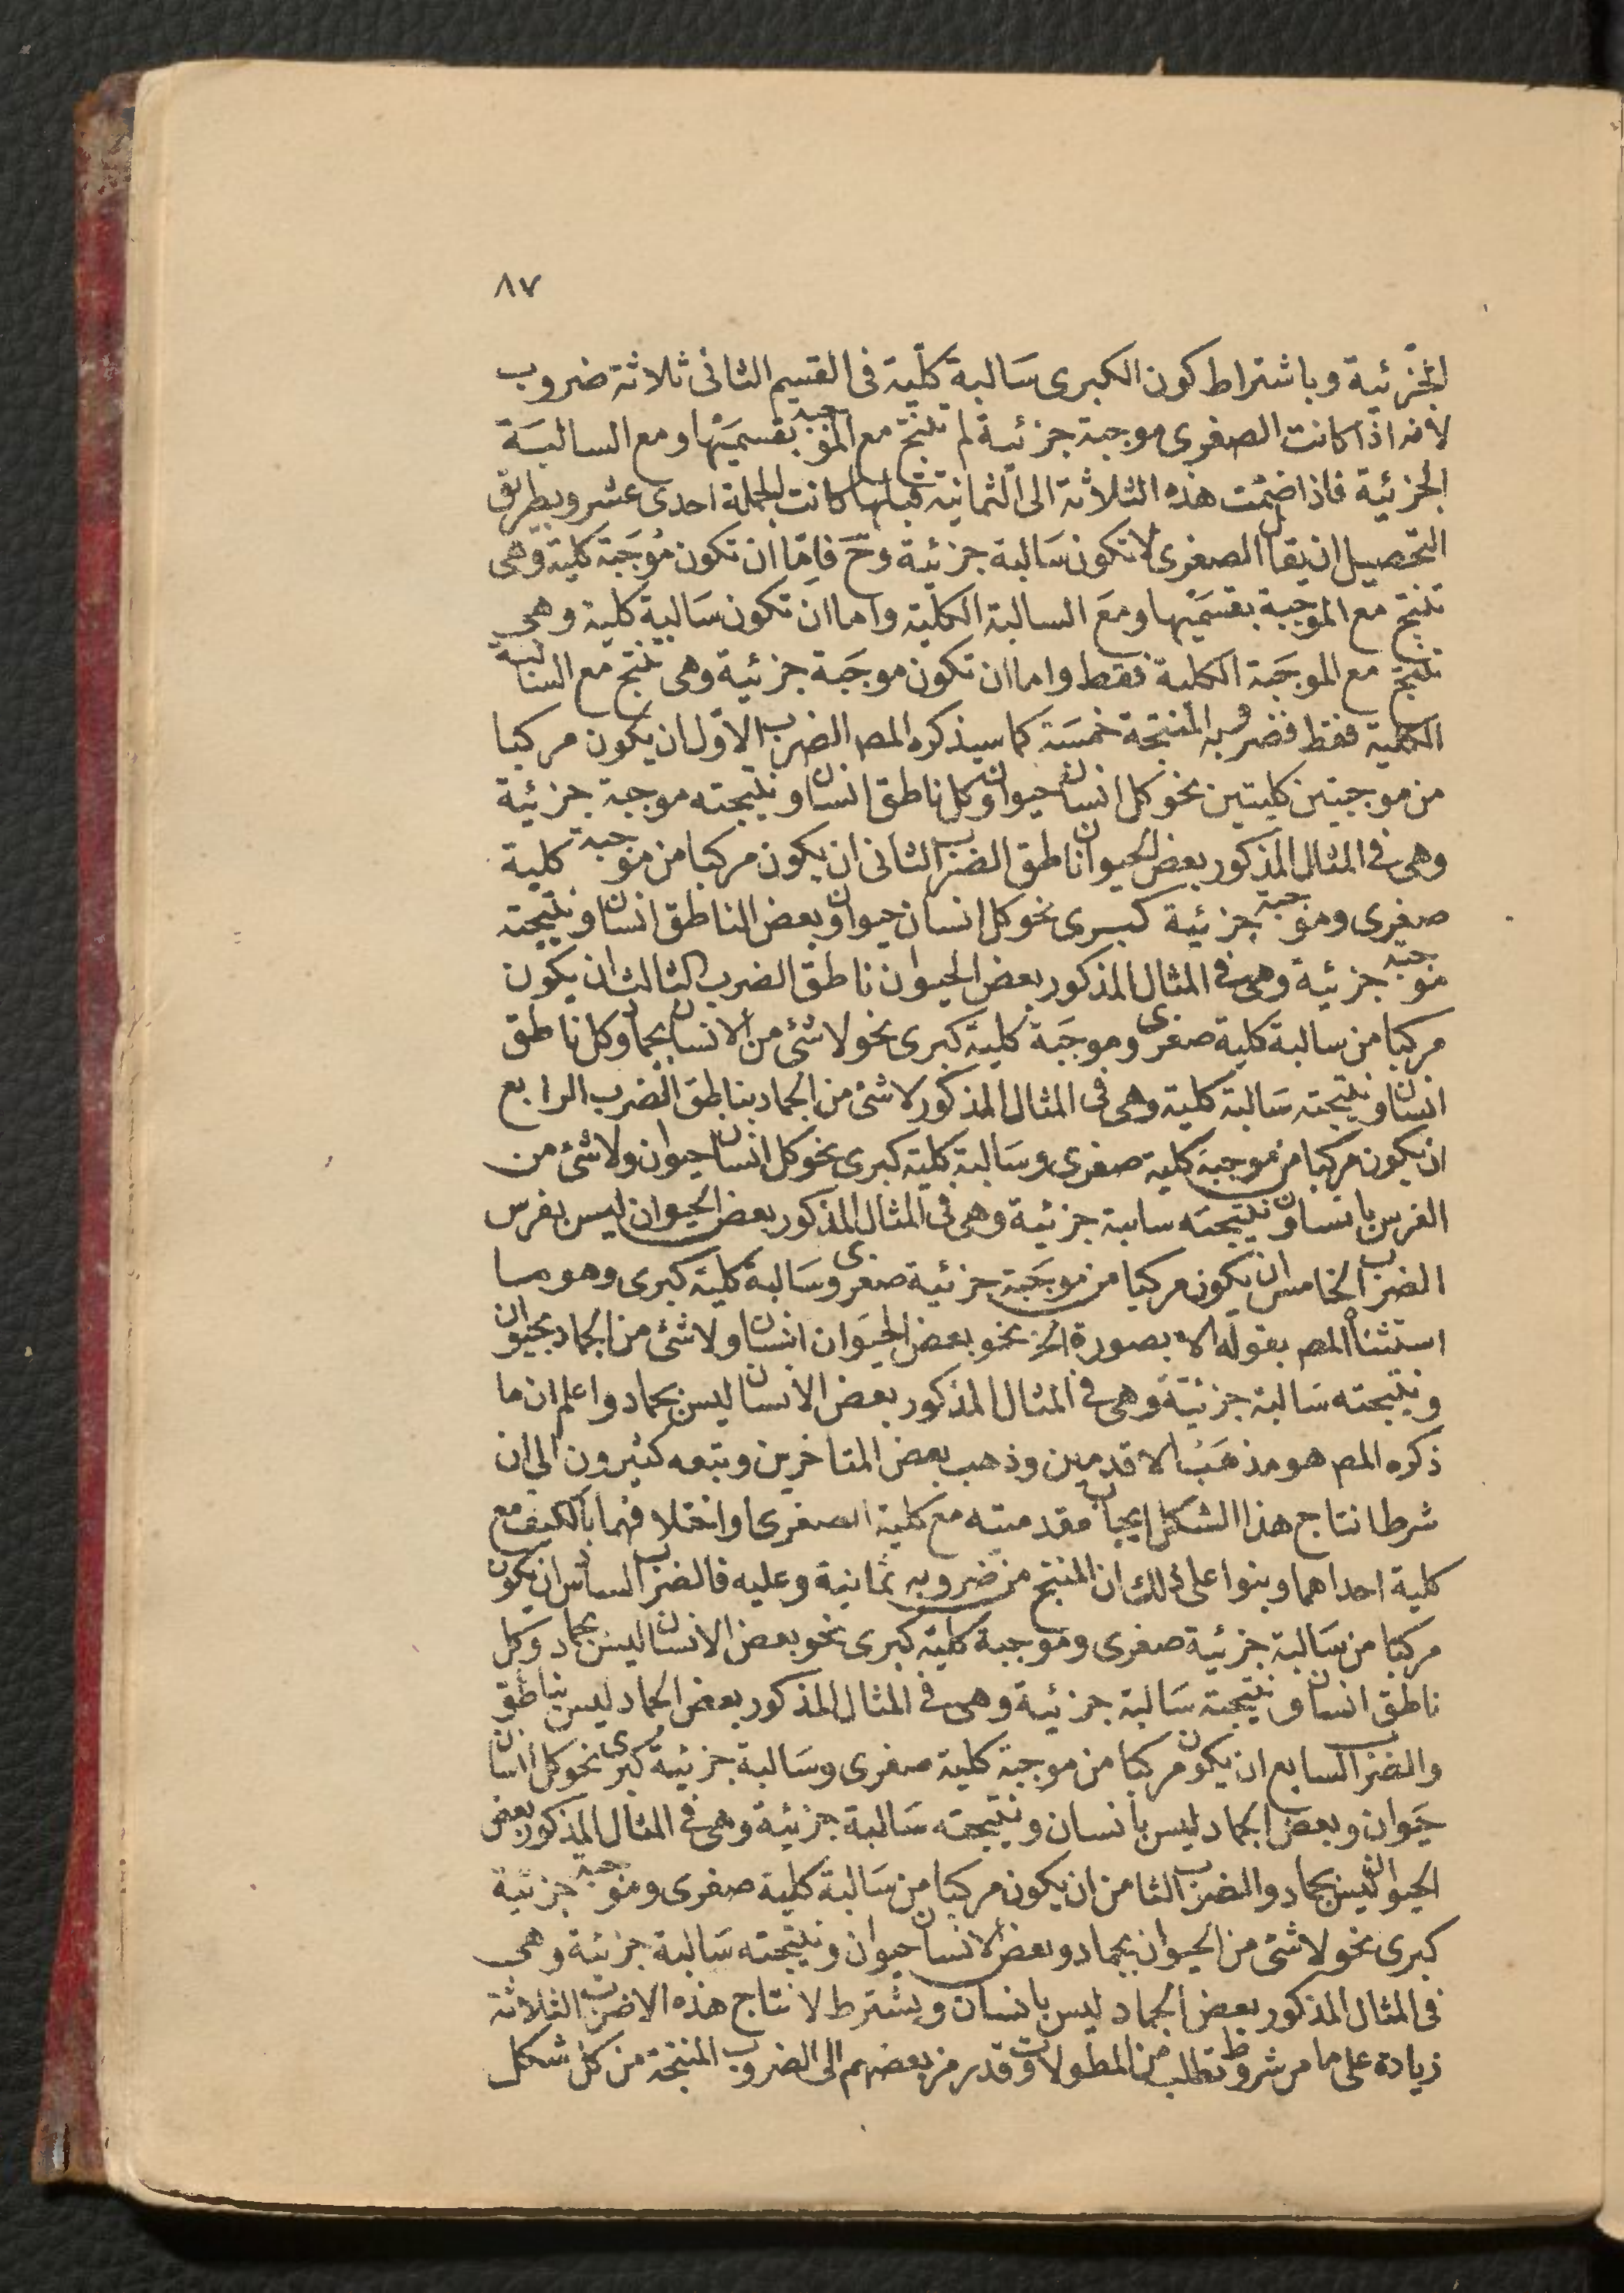 ٨٧
الجزئية وباشتراط كون الكبرى سالبة كلية فى القسيم الثانى ثلاثة ضروب
لانه اذا كانت الصغرى موجبة جزئية لم تنتج مع الموجبة بقسميها ومع السالبة
الجزئية فاذا ضمت هذه الثلاثة الى الثمانية قبلها كانت الجملة احدى عشر وبطريق
التحصيل ان يقال الصغرى لا تكون سالبة جزئية وح فاما ان تكون موجبة كلية وهى
تنتج مع الموجبة بقسميها ومع السالبة الكلية واما ان تكون سالبة كلية وهى
تنتج مع الموجبة الكلية فقط واما ان تكون موجبة جزئية وهى تنتج مع السالبة
الكلية فقط فضروبه المنتجة خمسة كما سيذكره المص الضرب الاول ان يكون مركبا
من موجبتين كليتين نحو كل انسان حيوان وكل ناطق انسان ونتيجته موجبة جزئية
وهى فى المثال المذكور بعض الحيوان ناطق الضرب الثانى ان يكون مركبا من موجبة كلية
صغرى وموجبة جزئية كبرى نحو كل انسان حيوان وبعض الناطق انسان ونتيجته
موجبة جزئية وهى فى المثال المذكور بعض الحيوان ناطق الضرب الثالث ان يكون
مركبا من سالبة كلية صغرى وموجبة كلية كبرى نحو لا شئ من الانسان بجماد وكل ناطق
انسان ونتيجته سالبة كلية وهى فى المثال المذكور لا شئ من الجماد بناطق الضرب الرابع
ان يكون مركبا من موجبة كلية صغرى وسالبة كلية كبرى نحو كل انسان حيوان ولا شئ من
الفرس بانسان ونتيجته سابة جزئية وهى فى المثال المذكور بعض الحيوان ليس بفرس
الضرب الخامس ان يكون مركبا من موجبة جزئية صغرى وسالبة كلية كبرى وهو ما
استثناه المص بقوله الا بصورة الخ نحو بعض الحيوان انسان ولا شئ من الجماد بحيوان
ونتيجته سالبة جزئية وهى فى المثال المذكور بعض الانسان ليس بجماد واعلم ان ما
ذكره المص هو مذهب الاقدمين وذهب بعض المتاخرين وتبعه كثيرون الى ان
شرط انتاج هذا الشكل ايجاب مقدمتيه مع كلية الصغرى او اختلافهما بالكيف مع
كلية احداهما وبنوا على ذلك ان المنتج من ضروبه ثمانية وعليه فالضرب السادس ان يكون
مركبا من سالبة جزئية صغرى وموجبة كلية كبرى نحو بعض الانسان ليس بجماد وكل
ناطق انسان ونتيجته سالبة جزئية وهى فى المثال المذكور بعض الجماد ليس بناطق
والضرب السابع ان يكون مركبا من موجبة كلية صغرى وسالبة جزئية كبرى نحو كل انسان
حيوان وبعض الجماد ليس بانسان ونتيجته سالبة جزئية وهى فى المثال المذكور بعض
الحيوان ليس بجماد والضرب الثامن ان يكون مركبا من سالبة كلية صغرى وموجبة جزئية
كبرى نحو لا شئ من الحيوان بجماد وبعض الانسان حيوان ونتيجته سالبة جزئية وهى
فى المثال المذكور بعض الجماد ليس بانسان ويشترط لانتاج هذه الاضرب الثلاثة
زيادة على ما مر شروط تطلب من المطولات وقد رمز بعضهم الى الضروب المنتجة من كل شكل